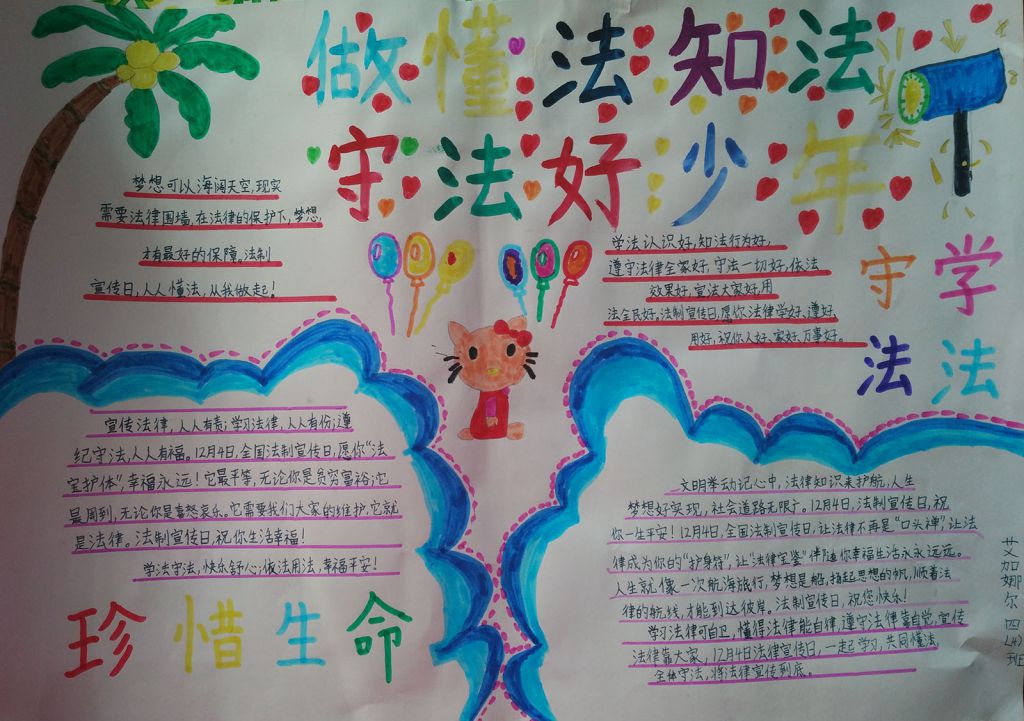 做懂法知法
守法好少年
梦想可以海阔天空,现实
需要法律围墙,在法律的保护下,梦想
才有最好的保障。法制
宣传日,人人懂法,从我做起!
学法认识好,知法行为好,
遵守法律全家好,守法一切好,依法
效果好,宣法大家好,用
法全民好。法制宣传日,愿你法律学好、遵好、
用好,祝你人好、家好、万事好。
学法
守法
宣传法律,人人有责;学习法律,人人有份;遵
纪守法,人人有福。12月4日,全国法制宣传日,愿你“法
宝护体”,幸福永远!它最平等,无论你是贫穷富裕;它
最周到,无论你是喜怒哀乐。它需要我们大家的维护,它就
是法律。法制宣传日,祝你生活幸福!
学法守法,快乐舒心;依法用法,幸福平安!
珍惜生命
文明举动记心中,法律知识来护航,人生
梦想好实现,社会道路无限广。12月4日,法制宣传日,祝
你一生平安!12月4日,全国法制宣传日,让法律不再是“口头禅”,让法
律成为你的“护身符”,让“法律宝鉴”伴随你幸福生活永永远远。
人生就像一次航海旅行,梦想是船,扬起思想的帆,顺着法
律的航线,才能到达彼岸。法制宣传日,祝您快乐!
学习法律可自卫,懂得法律能自律,遵守法律靠自觉,宣传
法律靠大家,12月4日法律宣传日,一起学习,共同懂法,
全体守法,将法律宣传到底。
艾加娜尔 四(4)班